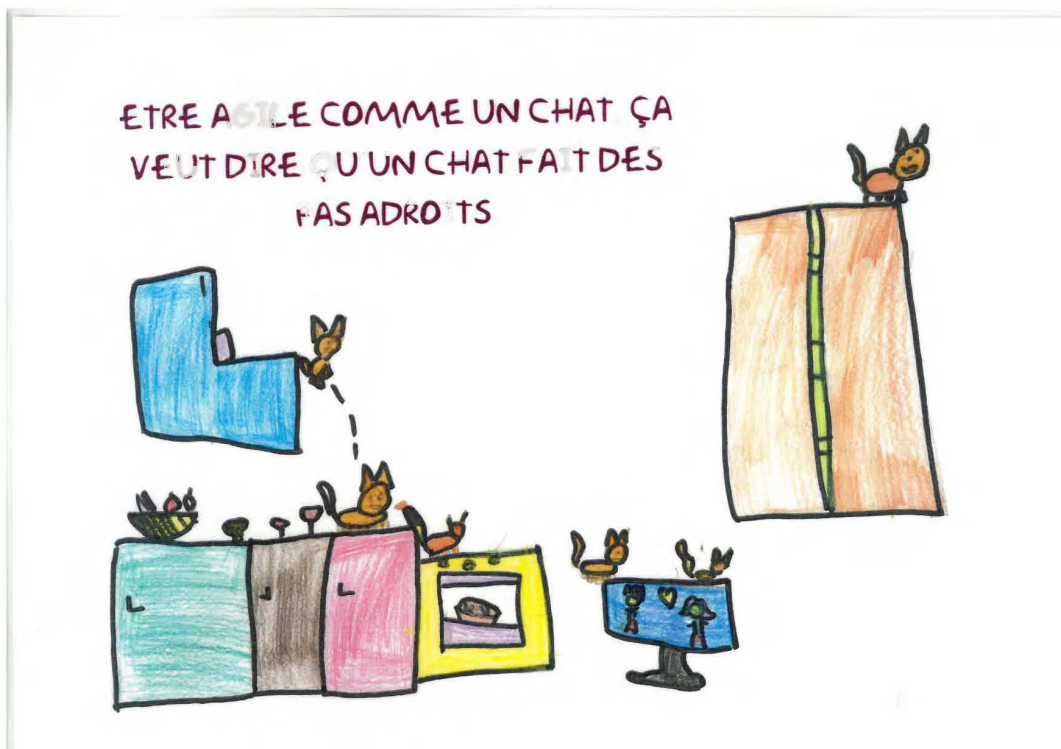 ETRE AGILE COMME UN CHAT ÇA
VEUT DIRE QU UN CHAT FAIT DES
PAS ADROITS